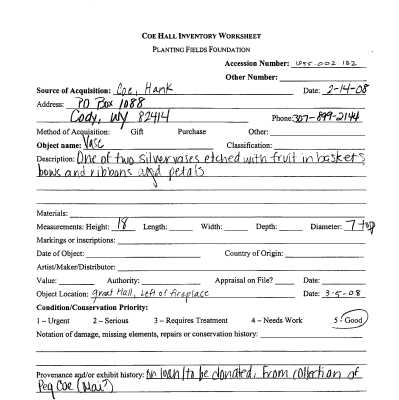 COE HALL INVENTORY WORKSHEET
PLANTING FIELDS FOUNDATION
Accession Number: 1995.002.182
Other Number:
Source of Acquisition: Coe, Hank Date: 2-14-08
Address: PO Box 1088
Cody, WY 82414 Phone: 307-899-2144
Method of Acquisition: Gift Purchase Other:
Object name: Vase Classification:
Description: One of two silver vases etched with fruit in baskets,
bows and ribbons and petals
Materials:
Measurements: Height: 18 Length: Width: Depth: Diameter: 7 top
Markings or inscriptions:
Date of Object: Country of Origin:
Artist/Maker/Distributor:
Value: Authority: Appraisal on File? Date:
Object Location: great Hall, Left of fireplace Date: 3-5-08
Condition/Conservation Priority:
1 – Urgent 2 – Serious 3 – Requires Treatment 4 – Needs Work 5 - Good
Notation of damage, missing elements, repairs or conservation history:
Provenance and/or exhibit history: on loan/to be donated, from collection of
Peg Coe (Mai?)